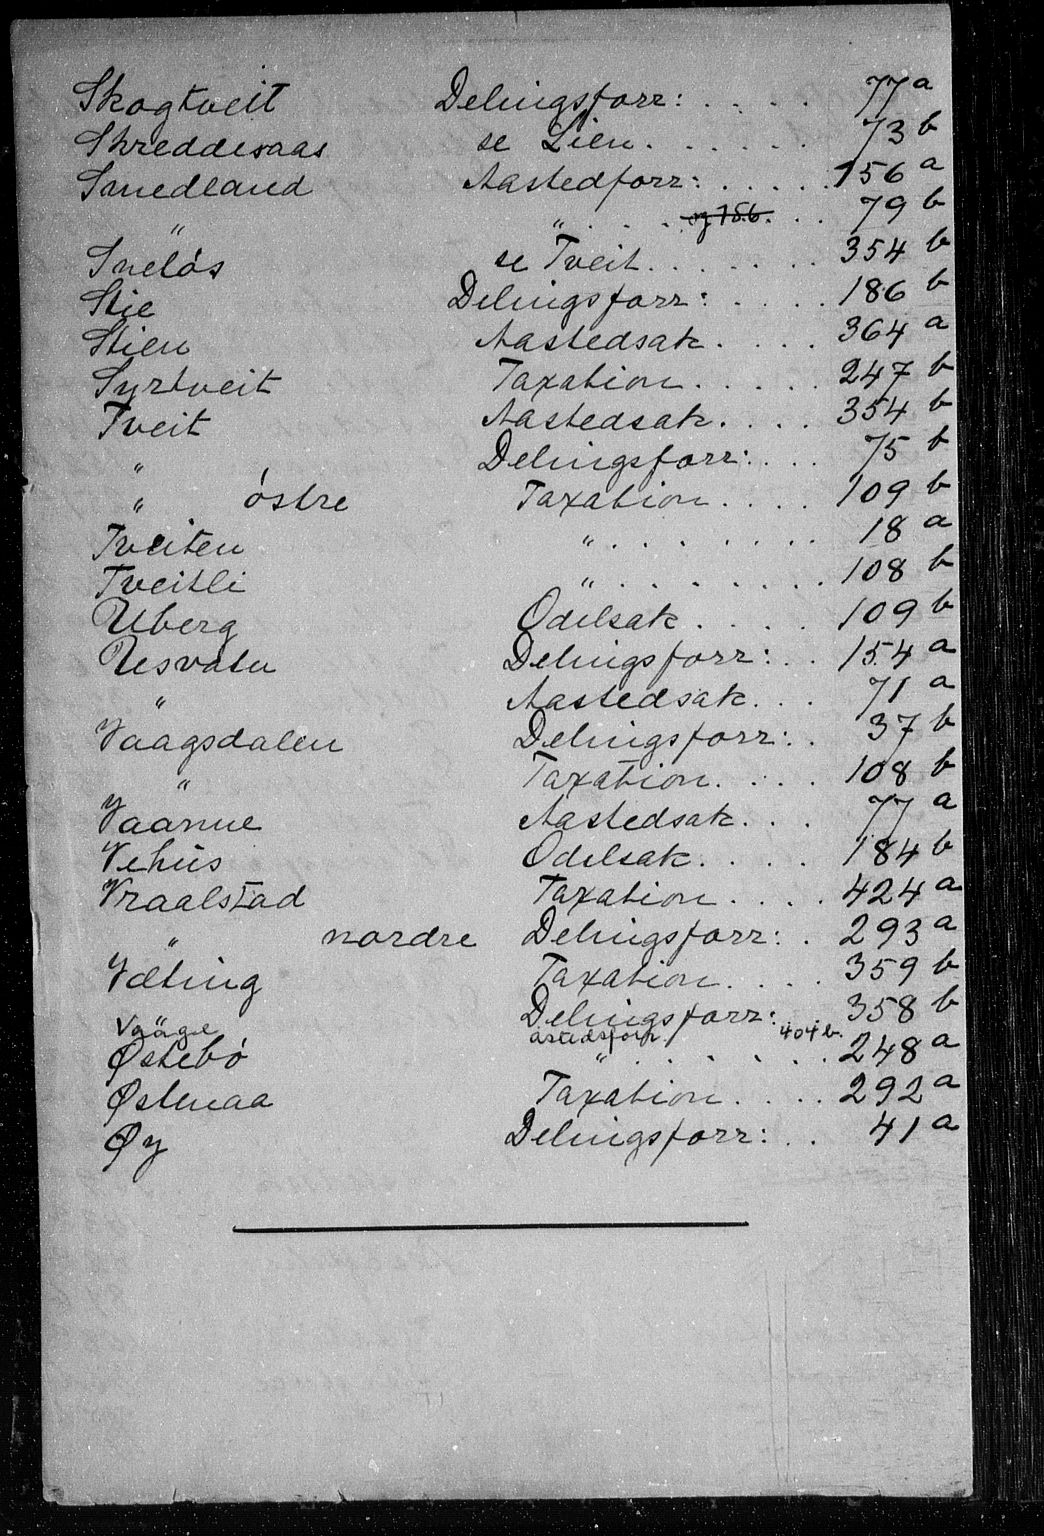 Skogtveit Delingsforr: . . . . 77 a
Skreddesaas se Lien . . . . . . 73 b
Smedland Aastedforr: . . . . . 156 a
" " . . . og 156. . . 79 b
Sneløs se Tveit . . . . . . 354 b
Stie Delingsforr: . . . . 186 b
Stien Aastedsak . . . . 364 a
Syrtveit Taxation . . . . . 247 b
Tveit Aastedsak . . . . 354 b
" Delingsforr: . . . 75 b
" østre Taxation . . . . 109 b
Tveiten " . . . . . . . 18 a
Tveitli " . . . . . . . 108 b
Uberg Odelsak . . . . 109 b
Uesvatn Delingsforr: . . 154 a
" Aastedsak . . . 71 a
Vaagsdalen Delingsforr: . . 37 b
" Taxation . . . . 108 b
Vaanne Aastedsak . . . 77 a
Vehus Odelsak . . . . 184 b
Vraalstad Taxation . . . . 424 a
" nordre Delingsforr: . 293 a
Væting Taxation . . . . 359 b
Delingsforr: 358 b
Vaage åstedsforr. 404 b.
Østebø " . . . . . . 248 a
Østenaa Taxation . . . . 292 a
Øy Delingsforr: . . 41 a